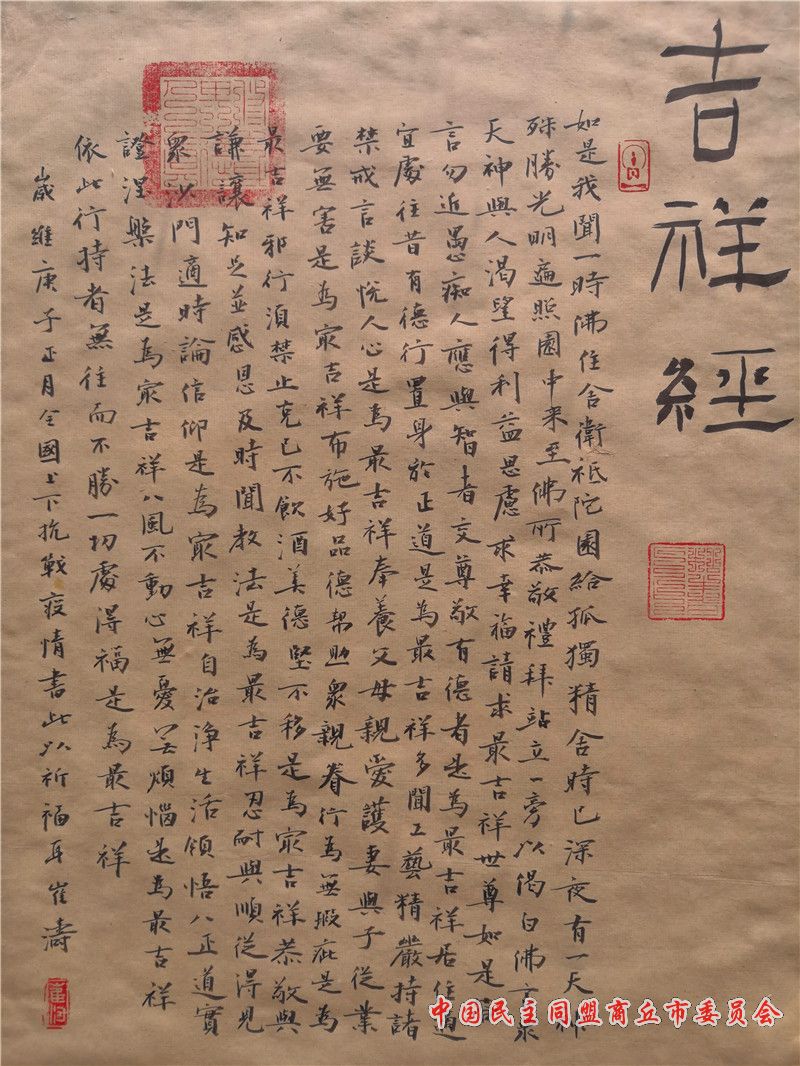 吉祥經
如是我聞一時佛住舍衛祇陀園給孤獨精舍時已深夜有一天神
殊勝光明遍照園中来至佛所恭敬禮拜站立一旁以偈白佛言衆
天神與人渴望得利益思慮求幸福請求最吉祥世尊如是
言勿近愚痴人應與智者交尊敬有德者是為最吉祥居住適
宜處往昔有德行置身於正道是為最吉祥多聞工藝精嚴持諸
禁戒言談悅人心是為最吉祥奉養父母親愛護妻與子從業
要無害是為最吉祥布施好品德幫助衆親眷行為無瑕疵是為
最吉祥邪行須禁止克己不飲酒美德堅不移是為最吉祥恭敬與
謙讓知足並感恩及時聞教法是為最吉祥忍耐與順從得見
衆沙門適時論信仰是為最吉祥自治淨生活領悟八正道實
證涅槃法是為最吉祥八風不動心無憂無煩惱是為最吉祥
依此行持者無往而不勝一切處得福是為最吉祥
歲維庚子正月全國上下抗戰疫情書此以祈福耳崔濤
中国民主同盟商丘市委员会